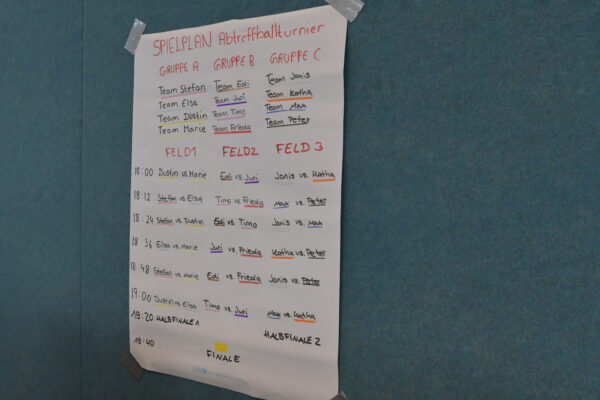 SPIELPLAN Abtreffballturnier
GRUPPE A GRUPPE B GRUPPE C
Team Stefan Team Edi Team Janis
Team Elsa Team Juri Team Katha
Team Dustin Team Timo Team Max
Team Marie Team Frieda Team Peter
FELD1 FELD2 FELD 3
18:00 Dustin vs. Marie Edi vs. Juri Janis vs. Katha
18:12 Stefan vs. Elsa Timo vs. Frieda Max vs. Peter
18:24 Stefan vs. Dustin Edi vs. Timo Janis vs. Max
18:36 Elsa vs. Marie Juri vs. Frieda Katha vs. Peter
18:48 Stefan vs. Marie Edi vs. Frieda Janis vs. Peter
19:00 Dustin vs. Elsa Timo vs. Juri Max vs. Katha
19:20 HALBFINALE 1 HALBFINALE 2
19:40 FINALE